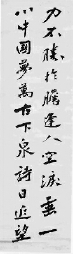 力不勝於膽逢人空淚垂一
心中國夢萬古下泉詩日追望